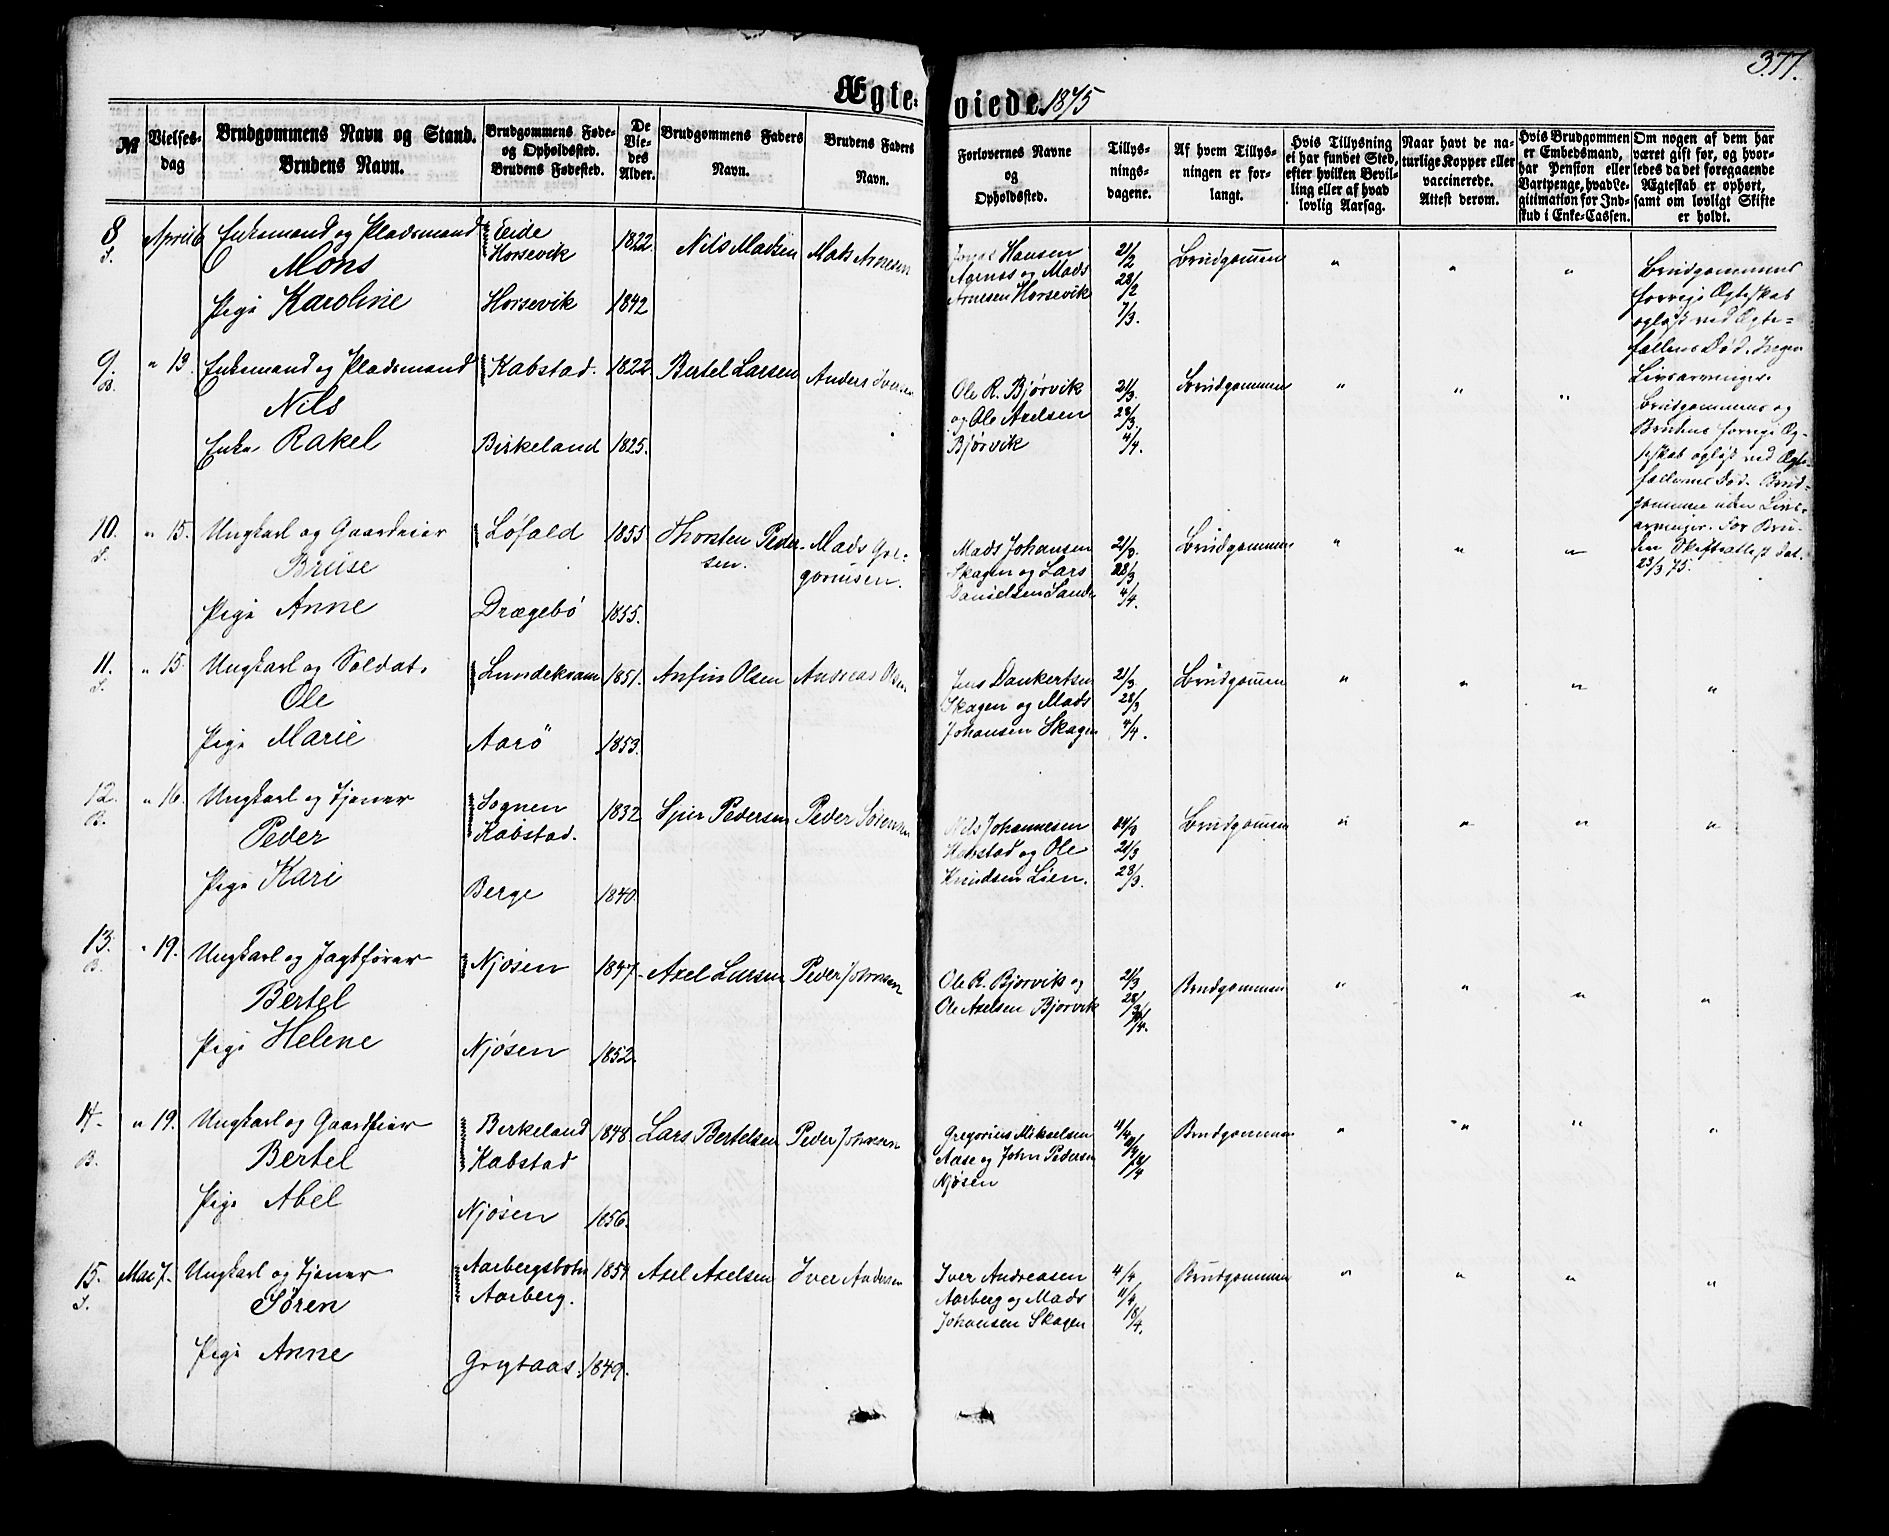 377.
Ægteviede 1875
№
Vielses-
dag
Brudgommens Navn og Stand.
Brudens Navn.
Brudgommens Føde-
og Opholdssted.
Brudens Fødested.
De
Vie-
des
Alder.
Brudgommens Faders
Navn.
Brudens Faders
Navn.
Forlovernes Navne
og
Opholdssted.
Tillys-
nings-
dagene.
Af hvem Tillys-
ningen er for-
langt.
Hvis Tillysning
ei har fundet Sted,
efter hvilken Bevil-
ling eller af hvad
lovlig Aarsag.
Naar havt de na-
turlige Kopper eller
vaccinerede.
Attest derom.
Hvis Brudgommen
er Embedsmand,
har Pension eller
Vartpenge, hvad Le-
gitimation for Ind-
skud i Enke-Cassen.
Om nogen af dem har
været gift før, og hvor-
ledes da det foregaaende
Ægteskab er ophørt,
samt om lovligt Skifte
er holdt.
8. April 6 Enkemand og Pladsmand Eide 1822. Nils Madsen Mads Arnesen
S. Mons Horsevik
Pige Karoline Horsevik 1842
Hansen 21/2 Brudgommen " " "
Agenæs og Mads 28/2
Arnesen Horsevik 7/3.
Brudgommens
forrige Ægteskab
opløst ved Ægte=
fællens Død. Ingen
Livsarvinger.
9. " 13. Enkemand og Pladsmand Kabstad. 1822 Bertel Larsen Anders Iversen
B. Nils
Enke Rakel Birkeland 1825.
Ole R. Bjørvik 21/3. Brudgommen " " "
og Ole Axelsen 28/3.
Bjørvik 4/4.
Brudgommens og
Brudens forrige Æg-
teskab opløst ved Ægte-
fællernes Død. Brud=
gommen uden Livs-
arvinger. For Bru-
den Skifteattest dat.
23/3 75.
10. " 15. Ungkarl og Gaardeier Løfald 1855 Thorsten Peder- Mads Gre-
S. Bruse sen. goriusen.
Pige Anne Drægebø 1855.
Mads Johansen 21/3. Brudgommen " " "
Skagen og Lars 28/3
Danielsen Sande 4/4.
11. " 15. Ungkarl og Soldat. Lundekvam 1851. Anfin Olsen Andreas Olsen
S. Ole
Pige Marie Aarö 1853.
Jens Dankertsen 21/3 Brudgommen " " " "
Skagen og Mads 28/3
Johansen Skagen 4/4.
12. " 16. Ungkarl og Tjener Sognen 1832 Sjur Pedersen Peder Sörensen
B. Peder Kabstad.
Pige Kari Berge 1840.
Nils Johannesen 14/3 Brudgommen " " " "
Habstad og Ole 21/3
Knudsen Lien. 28/3.
13. " 19. Ungkarl og Jagtfører Njøsen 1847. Axel Larsen Peder Johnsen
B. Bertel
Pige Helene Njøsen 1852.
Ole R. Bjørvik og 21/3 Brudgommen " " " "
Ole Axelsen Bjørvik 28/3
4/4.
14. " 19. Ungkarl og Gaardeier Birkeland 1848. Lars Bertelsen Peder Johnsen
B. Bertel Kabstad
Pige Abel Njøsen 1856.
Gregorius Mikaelsen 4/4 Brudgommen " " " "
Aase og John Pedersen 11/4
Njøsen 18/4
15. Mai 7. Ungkarl og Tjener Aarbergsbotn 1851 Axel Axelsen Iver Andersen
S. Søren Aarberg.
Pige Anne Grytaas. 1849.
Iver Andreasen 4/4 Brudgommen " " " "
Aarberg og Mads 11/4
Johansen Skagen 18/4.